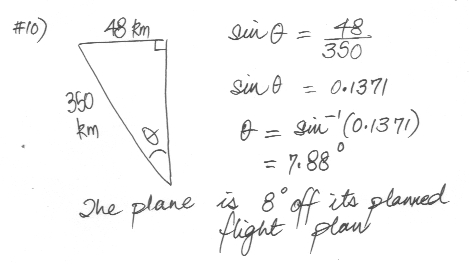 #10)
48 km
350
km
θ
sin θ = 48/350
sin θ = 0.1371
θ = sin⁻¹(0.1371)
= 7.88°
The plane is 8° off its planned
flight plan